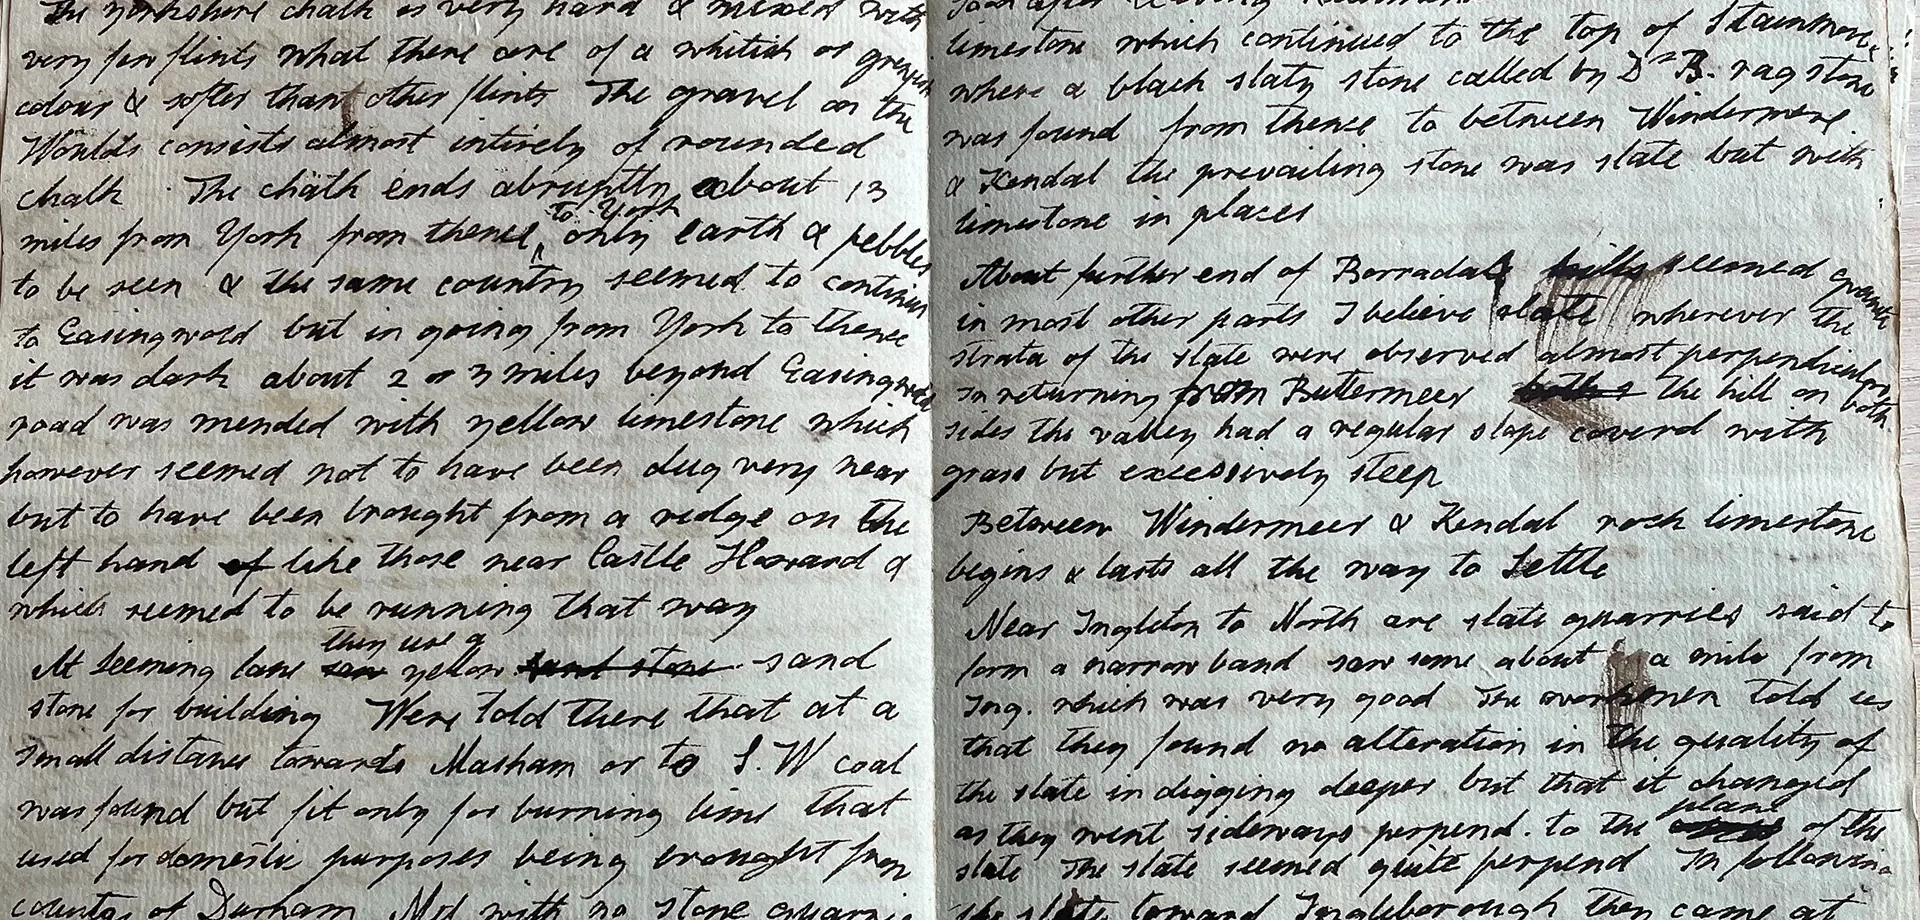 The Yorkshire chalk is very hard & mixed with
very few flints what there are of a whitish or greyish
colour & softer than other flints The gravel on the
Woulds consists almost intirely of rounded
chalk. The chalk ends abruptly about 13
miles from York from thence to York only earth & pebbles
to be seen & the same country seemed to continue
to Easingwold but in going from York to thence
it was dark about 2 or 3 miles beyond Easingwold
road was mended with yellow limestone which
however seemed not to have been dug very near
but to have been brought from a ridge on the
left hand of like those near Castle Howard &
which seemed to be running that way
At Leeming lane saw they use a yellow sand stone sand
stone for building Were told there that at a
small distance towards Masham or to S.W coal
was found but fit only for burning lime that
used for domestic purposes being brought from
county of Durham Met with no stone quarries
soon after leaving
limestone which continued to the top of Stainmore
where a black slaty stone called by Dr B. rag stone
was found from thence to between Windermere
& Kendal the prevailing stone was slate but with
limestone in places
About further end of Borradale hills seemed granite
in most other parts I believe slate wherever the
strata of the slate were observed almost perpendicular
In returning from Buttermeer both s the hill on both
sides the valley had a regular slope coverd with
grass but excessively steep
Between Windermeer & Kendal rock limestone
begins & lasts all the way to Settle
Near Ingleton to North are slate quarries said to
form a narrow band saw some about a mile from
Ing. which was very good The workmen told us
that they found no alteration in the quality of
the slate in digging deeper but that it changed
as they went sideways perpend. to the plane of the
slate The slate seemed quite perpend In following
the slate toward Ingleborough they came at